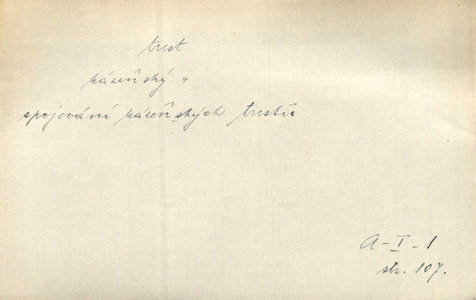 trest
kázeňský "
spojování kázeňských trestů
A-I-1
str. 107.